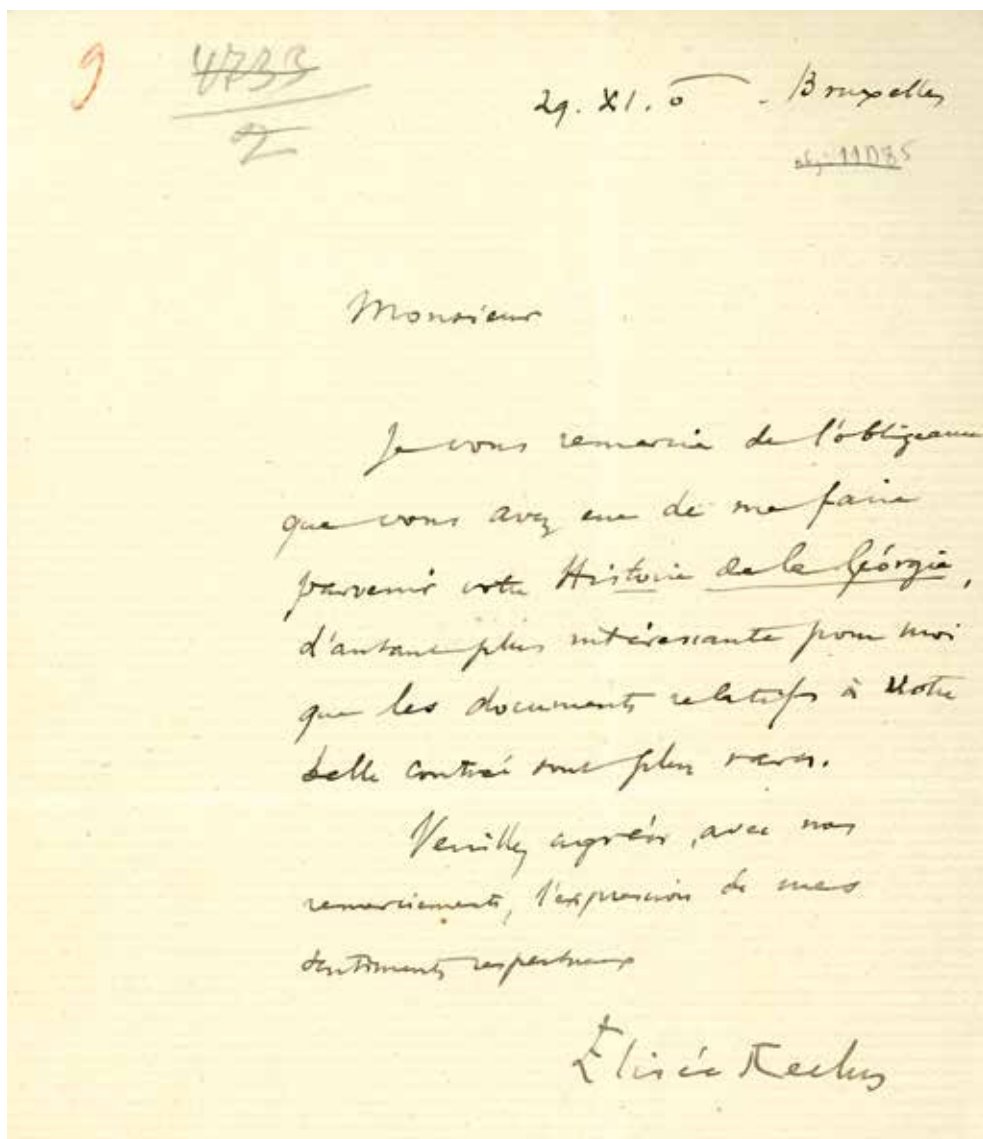 9
4733
2
29. XI. 0 . Bruxelles
Monsieur
Je vous remercie de l'obligeance
que vous avez eue de me faire
parvenir votre Histoire de la Géorgie,
d'autant plus intéressante pour moi
que les documents relatifs à Votre
belle contrée sont plus rares.
Veuillez agréer, avec mes
remerciements, l'expression de mes
sentiments respectueux
Elisée Reclus